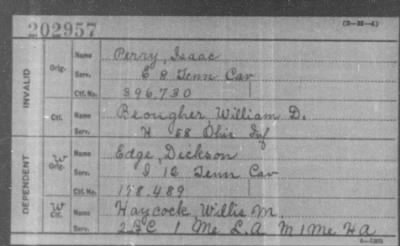 202957
(3-35-4)
INVALID
Orig. Name Perry, Isaac
Serv. E 8 Tenn Cav
Ctf. No. 396,730
Ctf. Name Beougher, William D.
Serv. H 88 Ohio Inf
DEPENDENT
W Orig. Name Edge, Dickson
Serv. I 12 Tenn Cav
Ctf. No. 178,489
W Ctf. Name Haycock, Willis M.
Serv. 1 Me L.A. M 1 Me H A